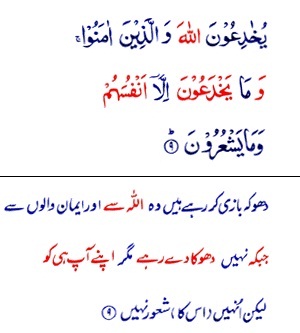 يُخٰدِعُوْنَ اللّٰهَ وَ الَّذِيْنَ اٰمَنُوْا ۚ
وَ مَا يَخْدَعُوْنَ اِلَّاۤ اَنْفُسَهُمْ
وَمَا يَشْعُرُوْنَ ؕ ۹
دھوکہ بازی کر رہے ہیں وہ اللہ سے اور ایمان والوں سے
جبکہ نہیں دھوکا دے رہے مگر اپنے آپ ہی کو
لیکن اُنہیں (اس کا) شعور نہیں ۹